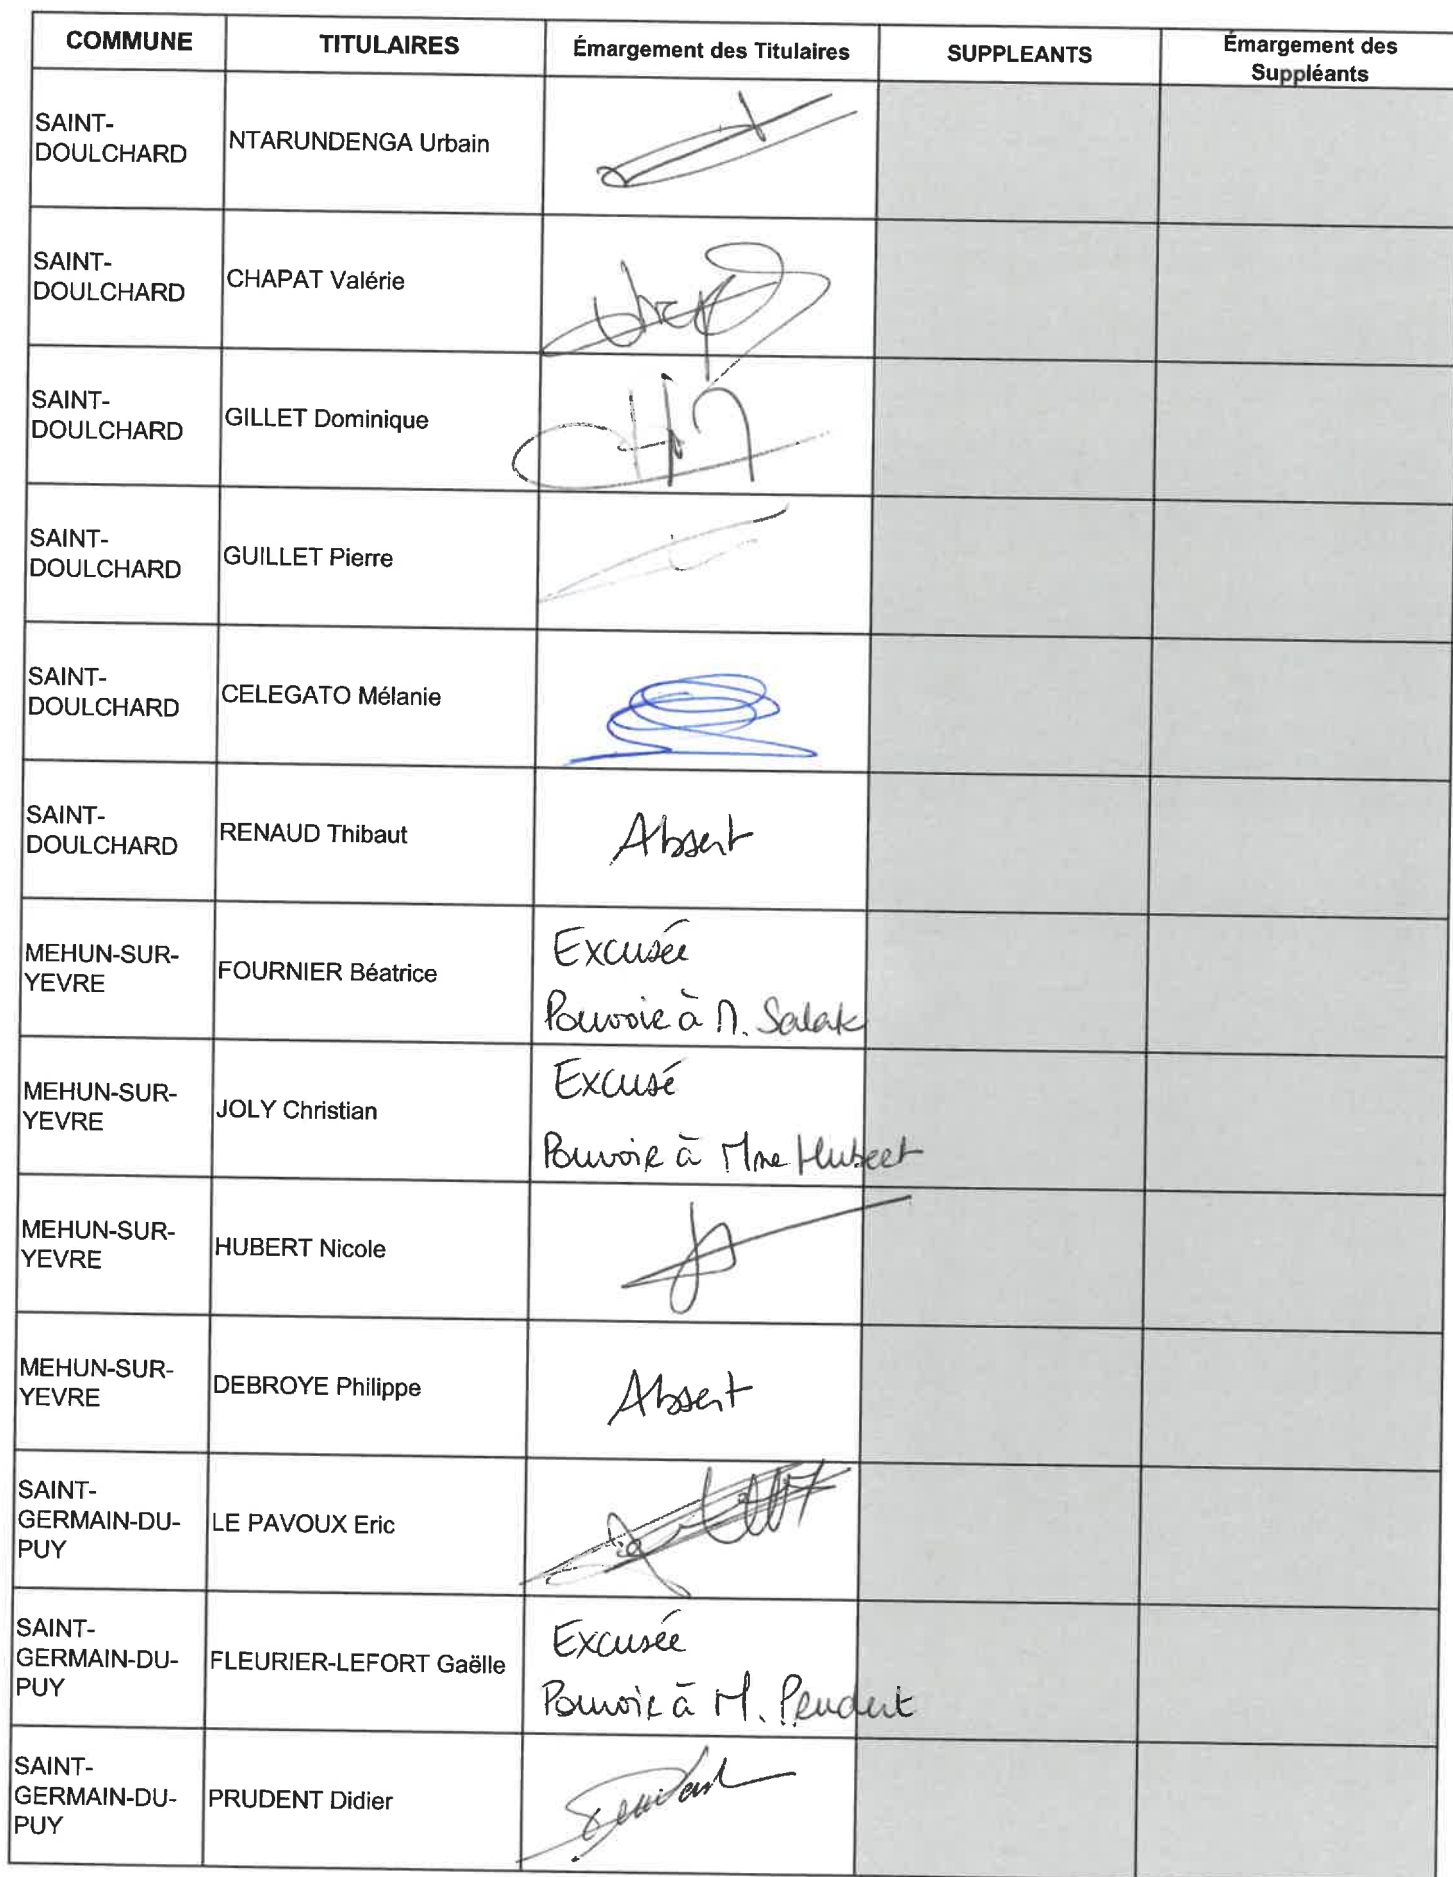 COMMUNE
TITULAIRES
Émargement des Titulaires
SUPPLEANTS
Émargement des
Suppléants
SAINT-
DOULCHARD
NTARUNDENGA Urbain
SAINT-
DOULCHARD
CHAPAT Valérie
SAINT-
DOULCHARD
GILLET Dominique
SAINT-
DOULCHARD
GUILLET Pierre
SAINT-
DOULCHARD
CELEGATO Mélanie
SAINT-
DOULCHARD
RENAUD Thibaut
Absent
MEHUN-SUR-
YEVRE
FOURNIER Béatrice
Excusée
Pouvoir à M. Salak
MEHUN-SUR-
YEVRE
JOLY Christian
Excusé
Pouvoir à Mme Hubert
MEHUN-SUR-
YEVRE
HUBERT Nicole
MEHUN-SUR-
YEVRE
DEBROYE Philippe
Absent
SAINT-
GERMAIN-DU-
PUY
LE PAVOUX Eric
SAINT-
GERMAIN-DU-
PUY
FLEURIER-LEFORT Gaëlle
Excusée
Pouvoir à M. Prudent
SAINT-
GERMAIN-DU-
PUY
PRUDENT Didier